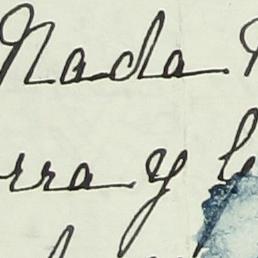 Nada
rra y